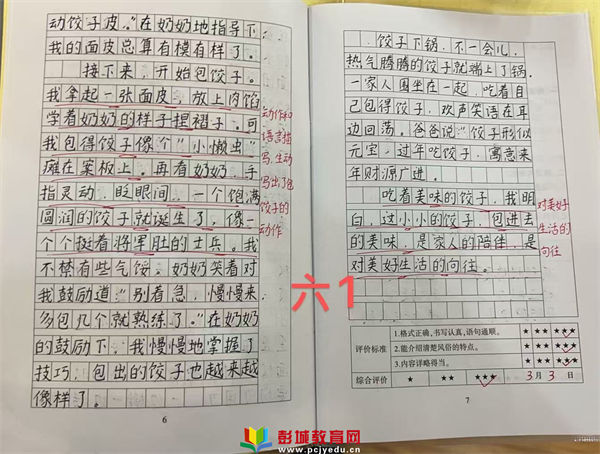 动饺子皮。”在奶奶地指导下,
我的面皮总算有模有样了。
接下来,开始包饺子。
我拿起一张面皮,放上肉馅
学着奶奶的样子捏褶子。可
我包得饺子像个“小懒虫”
瘫在案板上。再看奶奶,手
指灵动,眨眼间,一个饱满
圆润的饺子就诞生了,像一
个个挺着将军肚的士兵。我
不禁有些气馁。奶奶笑着对
我鼓励道:“别着急,慢慢来
多包几个就熟练了。”在奶奶
的鼓励下,我慢慢地掌握了
技巧,包出的饺子也越来越
像样了。
动作和
语言描
写,生动
写出了包
饺子的
动作
6
饺子下锅,不一会儿,
热气腾腾的饺子就端上了锅。
一家人围坐在一起,吃着自
己包得饺子,欢声笑语在耳
边回荡。爸爸说:“饺子形似
元宝,过年吃饺子,寓意来
年财源广进。
吃着美味的饺子,我明
白,过小小的饺子,包进去
的美味,是家人的陪伴,是
对美好生活的向往。
对美好
生活的
向往
六1
评价标准
1.格式正确,书写认真,语句通顺。 ★ ★★ ★★★
2.能介绍清楚风俗的特点。 ★ ★★ ★★★
3.内容详略得当。 ★ ★★ ★★★
综合评价 ★ ★★ ★★★ 3月3日
7
彭城教育网
www.pcjyedu.cn